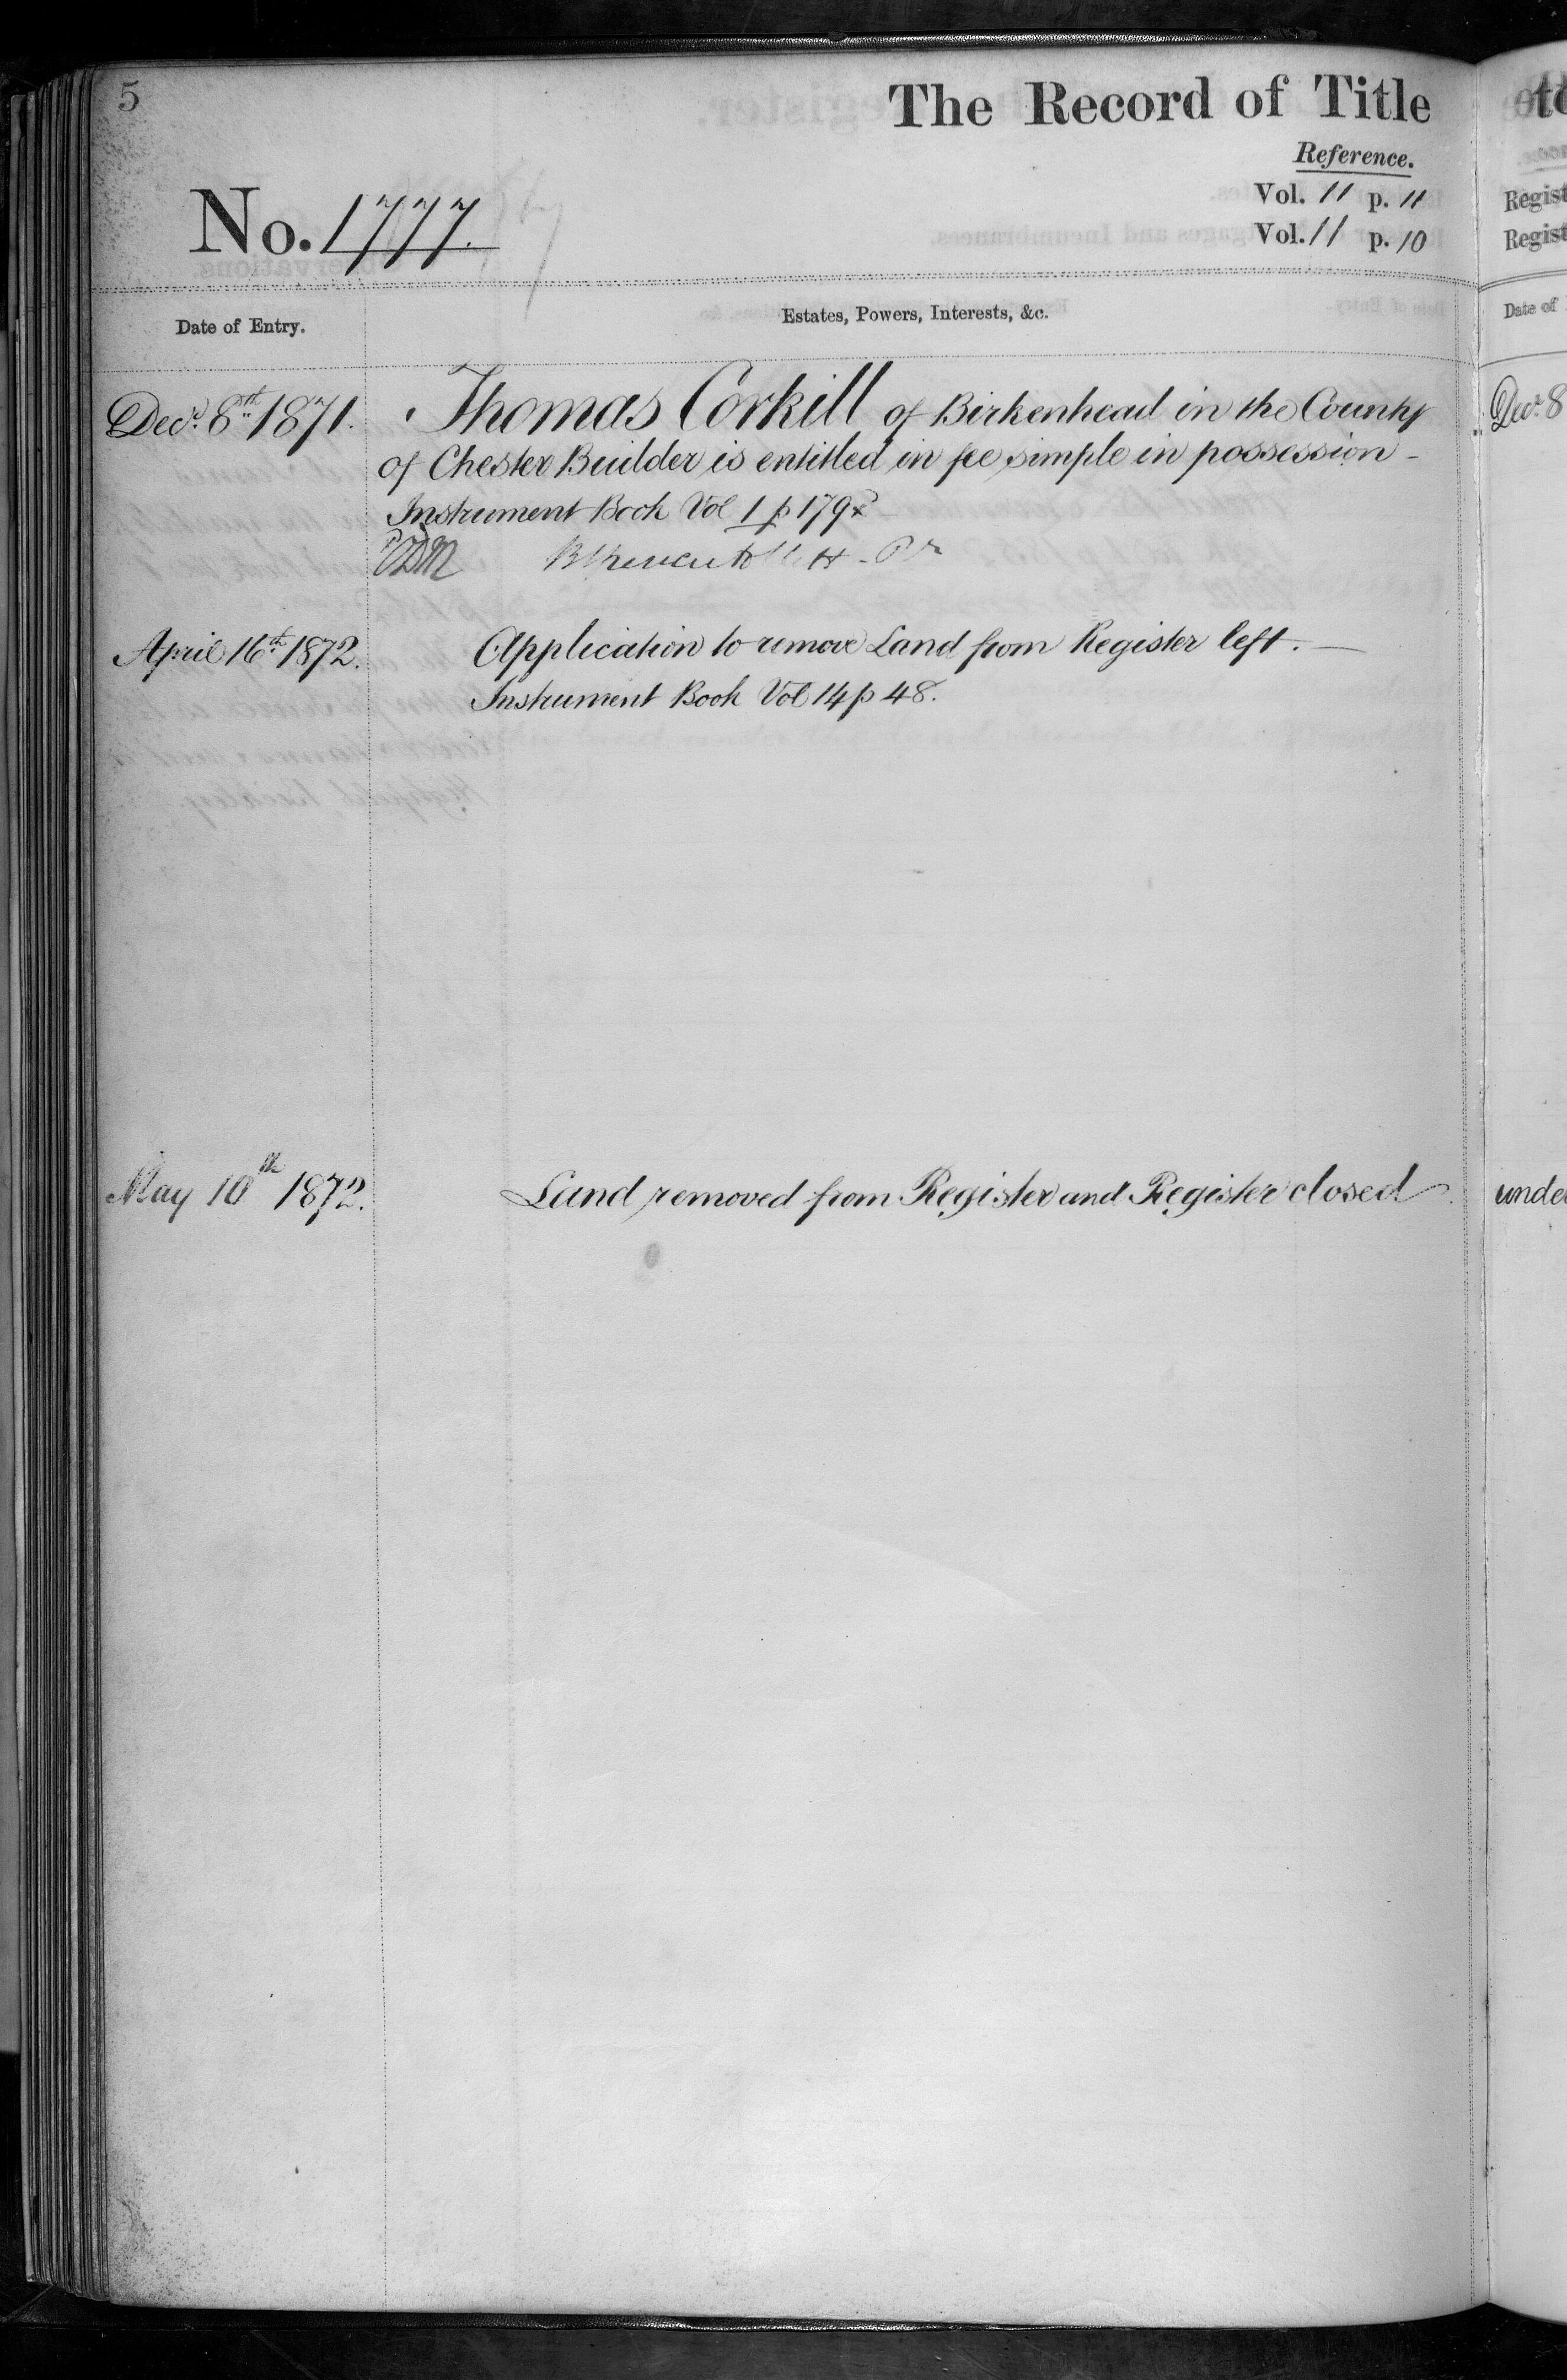 5
The Record of Title
Reference.
No. 1777.
Vol. 11 p. 11
Vol. 11 p. 10
Date of Entry.
Estates, Powers, Interests, &c.
Decr. 8th 1871. Thomas Corkill of Birkenhead in the County
of Chester Builder is entitled in fee simple in possession -
Instrument Book Vol 1 p 179
April 16th 1872. Application to remove Land from Register left. —
Instrument Book Vol 14 p 48.
May 10th 1872. Land removed from Register and Register closed
Regist
Regist
Date of
Decr. 8
unde